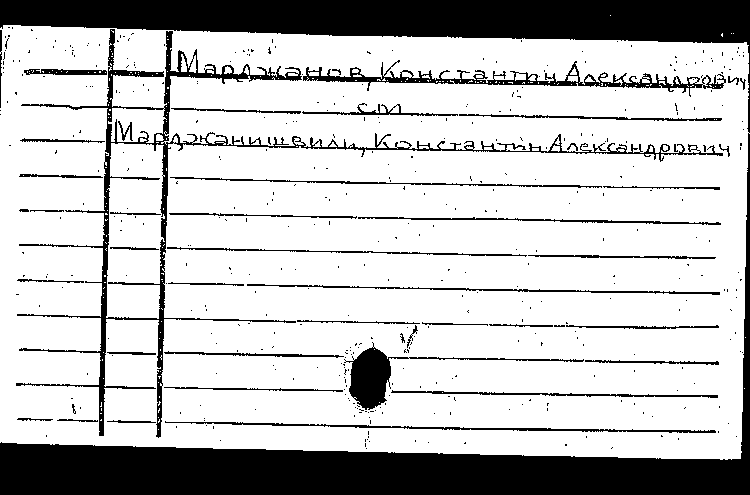 Марджанов, Константин Александрович
см
Марджанишвили, Константин Александрович